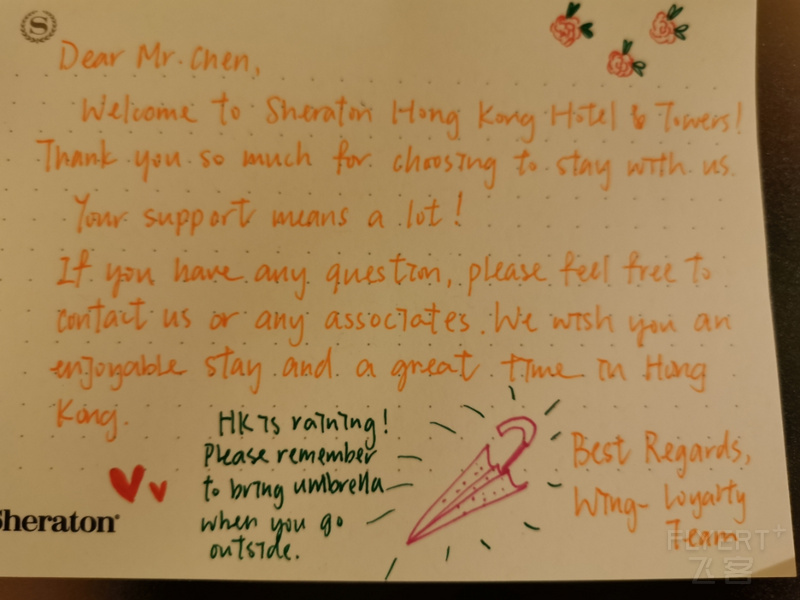 S
Dear Mr. Chen,
Welcome to Sheraton Hong Kong Hotel & Towers!
Thank you so much for choosing to stay with us.
Your support means a lot!
If you have any question, please feel free to
contact us or any associates. We wish you an
enjoyable stay and a great time in Hong
Kong.
HK is raining!
Please remember
to bring umbrella
when you go
outside.
Best Regards,
Wing- Loyalty
Team
Sheraton®
FLYERT+
飞客